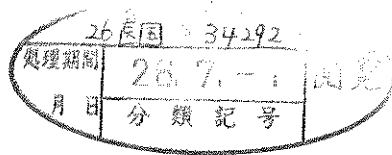 26 英国 34292
処理期間 26.7.-1
月日 分類記号